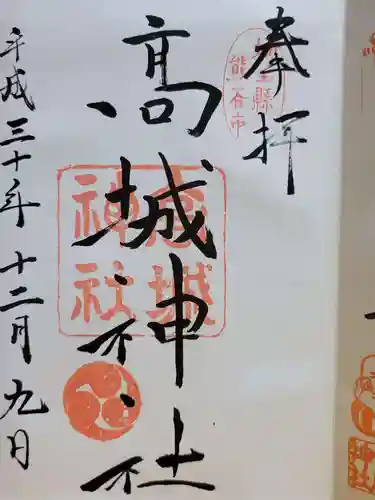 奉拝
埼玉縣
熊谷市
高城神社
高城
神社
平成三十年十二月九日